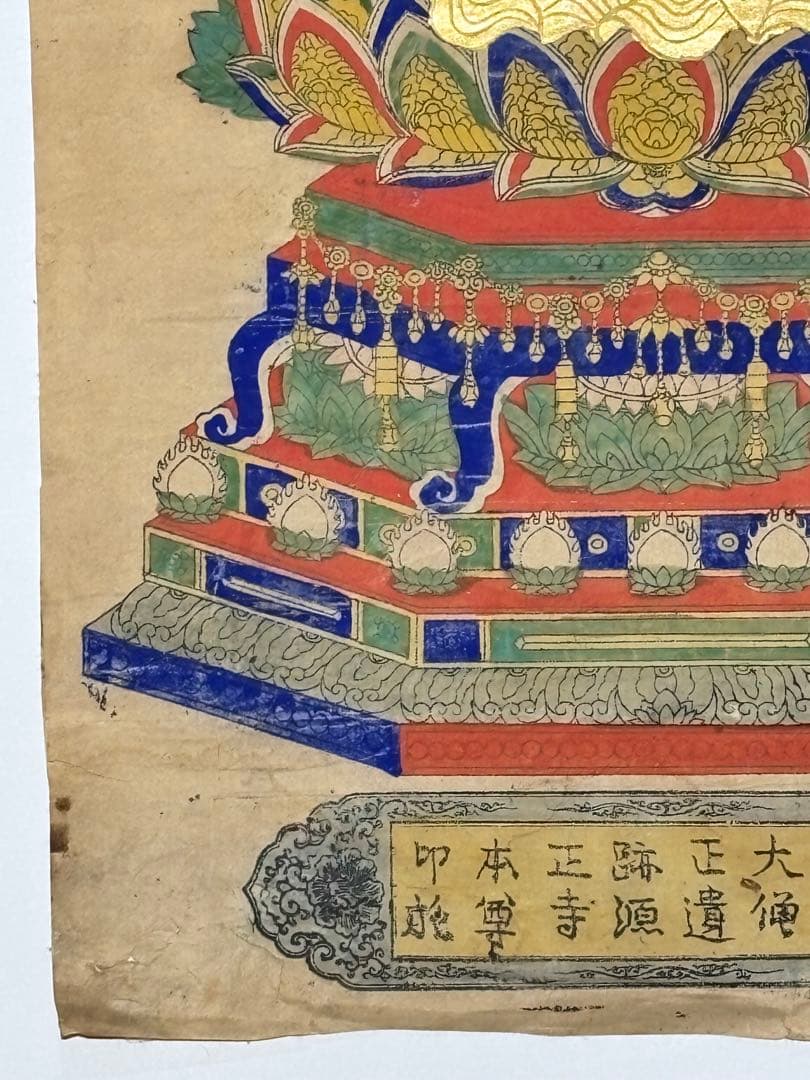 大僧
正遺
跡源
正寺
本尊
印施